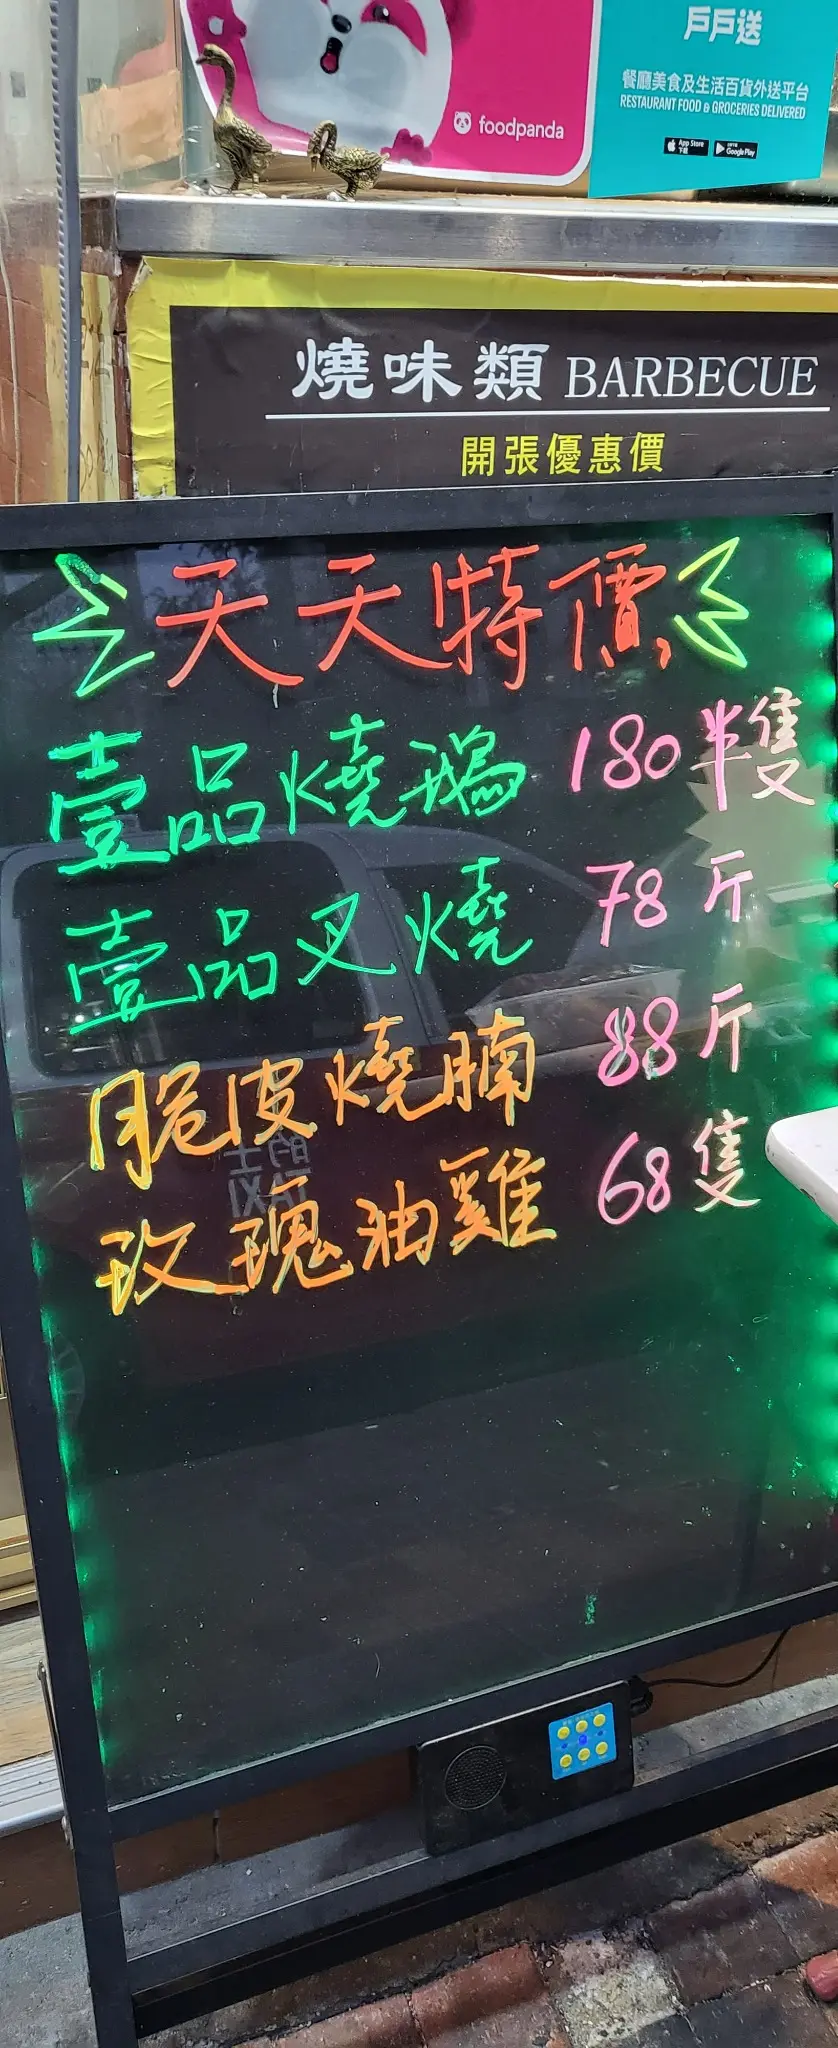 戶戶送
餐廳美食及生活百貨外送平台
RESTAURANT FOOD & GROCERIES DELIVERED
foodpanda
App Store 下載
Google Play
燒味類 BARBECUE
開張優惠價
天天特價
壹品燒鵝 180半隻
壹品叉燒 78斤
脆皮燒腩 88斤
的士
TAXI
玫瑰油雞 68隻